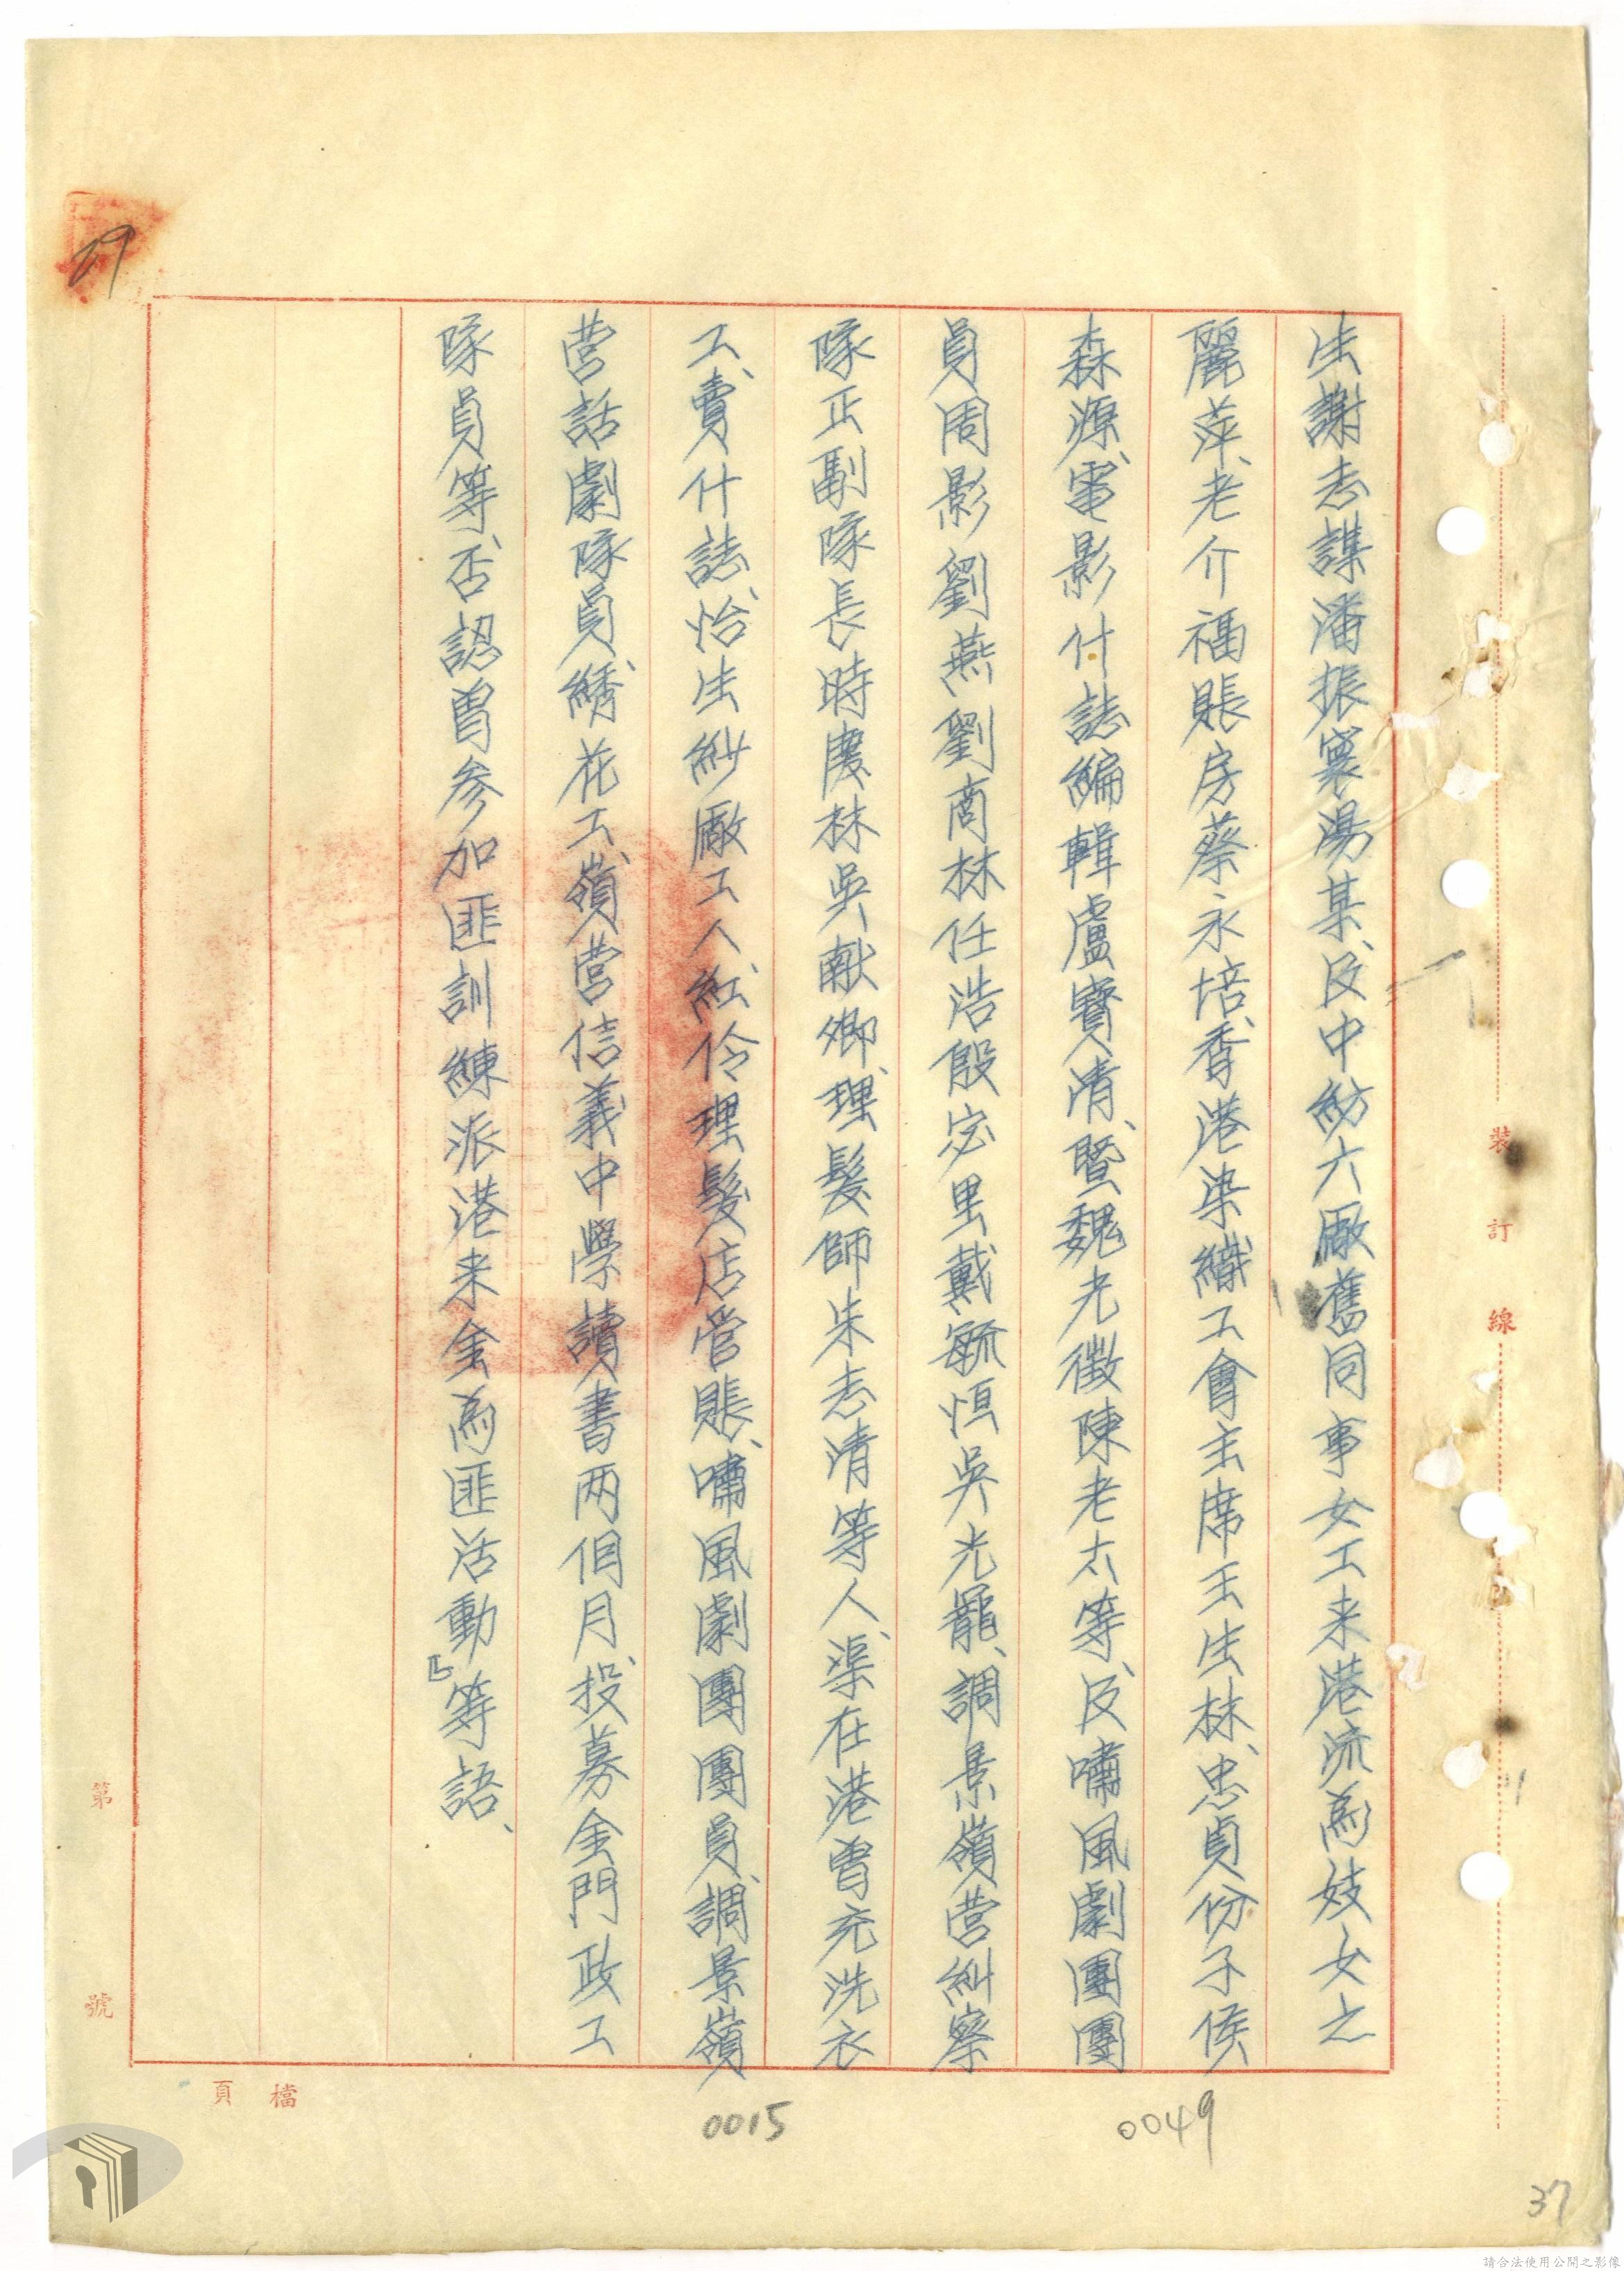 生謝志謀潘振寰湯某、及中紡六廠舊同事女工來港流為妓女之
麗萍、老介福賬房蔡永培、香港染織工會主席王生林、忠貞份子侯
森源、電影什誌編輯盧寶清、暨魏光徵陳老太等、及嘯風劇團團
員周影劉燕劉商林任浩殷宓里戴毓恒吳光龍、調景嶺營糾察
隊正副隊長時慶林吳献卿、理髮師朱志清等人、渠在港曾充洗衣
工、賣什誌、怡生紗廠工人、紅伶理髮店管賬、嘯風劇團團員、調景嶺
营話劇隊員、綉花工、嶺营信義中學讀書两個月、投募金門政工
隊員等、否認曾參加匪訓練派港来金為匪活動』等語、
裝訂線
第 號
檔
頁
29
0015
0049
37
請合法使用公開之影像